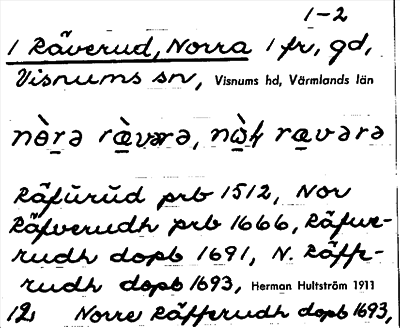 1-2
1 Räverud, Norra 1 fr, gd,
Visnums sn, Visnums hd, Värmlands län
nòrə rævərə, nòɷ̀ rævərə
Räfürüd prb 1512, Nor
Räfverudh prb 1666, Räfue-
rudh dopb 1691, N. Räff-
rudh dopb 1693, Herman Hultström 1911
12 Norre Räfferudh dopb 1693,